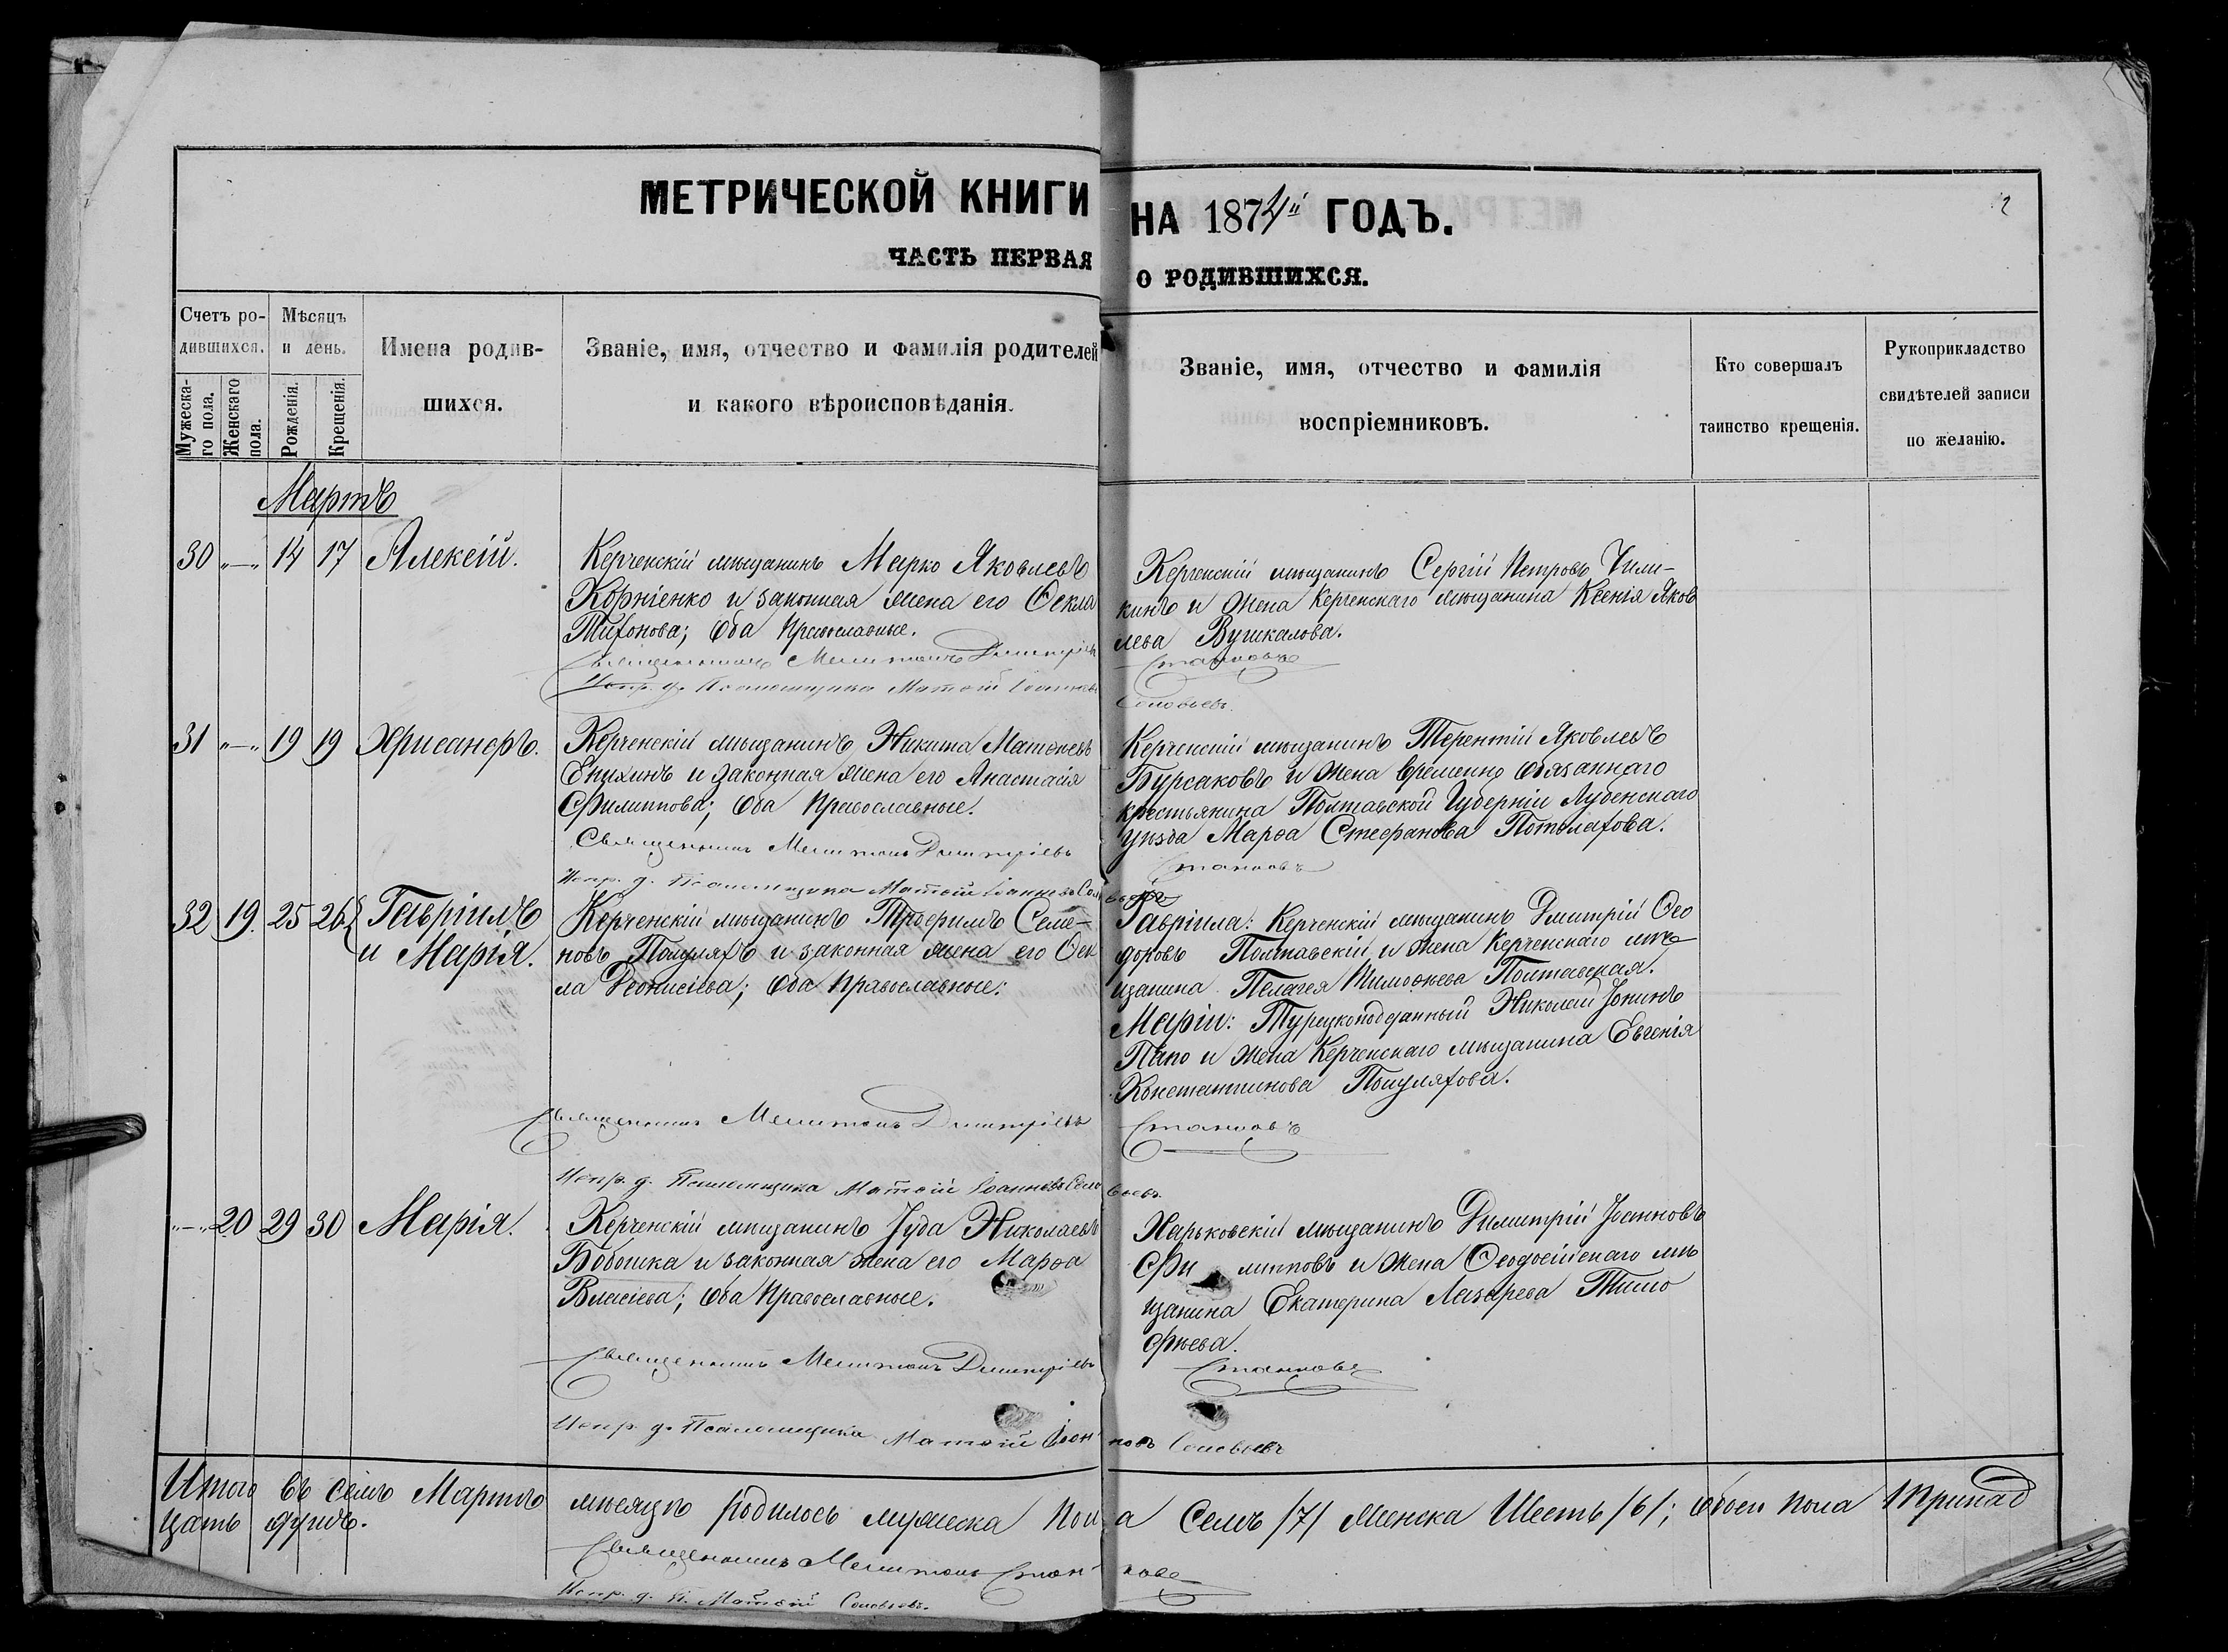 МЕТРИЧЕСКОЙ КНИГИ НА 1874й ГОДЪ.
ЧАСТЬ ПЕРВАЯ О РОДИВШИХСЯ.
Счетъ ро-
дившихся.
Мужеска-
го пола.
Женскаго
пола.
Мѣсяцъ
и день.
Рожденія.
Крещенія.
Имена родив-
шихся.
Званіе, имя, отчество и фамилія родителей
и какого вѣроисповѣданія.
Званіе, имя, отчество и фамилія
воспріемниковъ.
Кто совершалъ
таинство крещенія.
Рукоприкладство
свидѣтелей записи
по желанію.
Мартъ
30 „—„ 14 17 Алексій.
Керченскій мѣщанинъ Марко Яковлевъ
Корніенко и законная жена его Ѳекла
Тихонова; Оба Православные.
Керченскій мѣщанинъ Сергій Петровъ Чили-
кинъ и жена Керченскаго мѣщанина Ксенія Яков
лева Вушкалова.
Священникъ Мелитонъ Димитріевъ Станковъ
Испр. д. Псаломщика Матѳій Іоанновъ Соловьевъ.
31 „—„ 19 19 Хрисанфъ.
Керченскій мѣщанинъ Никита Матѳеевъ
Епихинъ и законная жена его Анастасія
Филиппова; Оба Православные.
Керченскій мѣщанинъ Терентій Яковлевъ
Бурсаковъ и жена временно обязаннаго
крестьянина Полтавской Губерніи Лубенскаго
уѣзда Марѳа Стефанова Потолахова.
Священникъ Мелитонъ Димитріевъ Станковъ
Испр. д. Псаломщика Матѳій Іоанновъ Соловьевъ
32 19. 25 26 Гавріилъ
и Марія.
Керченскій мѣщанинъ Трофимъ Семе-
новъ Полуляхъ и законная жена его Ѳек
ла Діонисіева; Оба Православные.
Гавріила: Керченскій мѣщанинъ Димитрій Ѳео
доровъ Полтавскій и жена Керченскаго мѣ
щанина Пелагея Тимоѳеева Полтавская.
Маріи: Турецкоподданный Николай Іонинъ
Папо и жена Керченскаго мѣщанина Евгенія
Константинова Полуляхова.
Священникъ Мелитонъ Димитріевъ Станковъ
Испр. д. Псаломщика Матѳій Іоанновъ Соловьевъ.
„—„ 20 29 30 Марія.
Керченскій мѣщанинъ Іуда Николаевъ
Бабошка и законная жена его Марѳа
Власіева; Оба Православные.
Харьковскій мѣщанинъ Димитрій Іоанновъ
Фи липповъ и жена Ѳеодосійскаго мѣ
щанина Екатерина Лазарева Тимо
фѣева.
Священникъ Мелитонъ Димитріевъ Станковъ
Испр. д. Псаломщика Матѳій Іоанновъ Соловьевъ
Итого въ семъ Мартѣ мѣсяцѣ родилось мужеска пола Семь /7/ Женска Шесть /6/; Обоего пола Тринад
цать душъ.
Священникъ Мелитонъ Станковъ
Испр. д. П. Матѳій Соловьевъ.